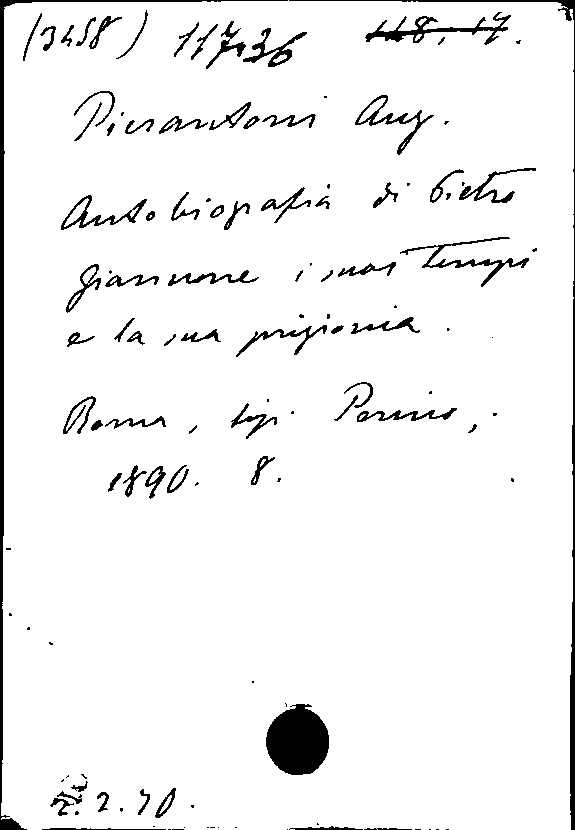 (3458) 117.36 118.17.
Pierantoni Aug.
Autobiografia di Pietro
Giannone i suoi tempi
e la sua prigionia.
Roma, tip. Perino,
1890. 8.
2.2.70.